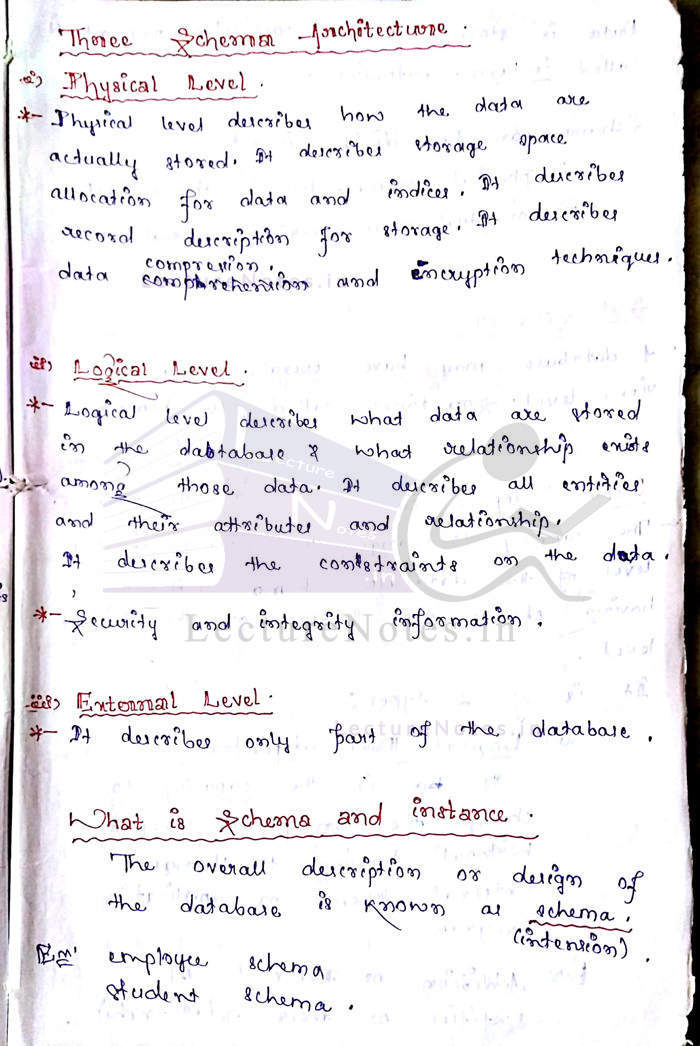 Three Schema Architecture.
i) Physical Level.
*- Physical level describes how the data are
actually stored. It describes storage space
allocation for data and indices. It describes
record description for storage. It describes
compression.
data comprehension and encryption techniques.
ii) Logical Level.
*- Logical level describes what data are stored
in the database & what relationship exists
among those data. It describes all entities
and their attributes and relationship.
It describes the constraints on the data.
*- Security and integrity information.
LectureNotes.in
iii) External Level.
*- It describes only part of the database.
What is Schema and instance.
The overall description or design of
the database is known as schema.
(intension).
Ex: employee schema
student schema.